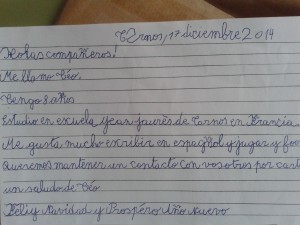 Tarnos, 17 diciembre 2014
Holas compañeros!
Me llamo Téo
Tengo 8 años
Estudio en escuela Jean Jaurès de Tarnos en Francia
Me gusta mucho escribir en español y jugar y foo
Queremos mantener un contacto con vosotros por cart
un saludo de Téo
Feliz Navidad y Prospéro Año Nuevo